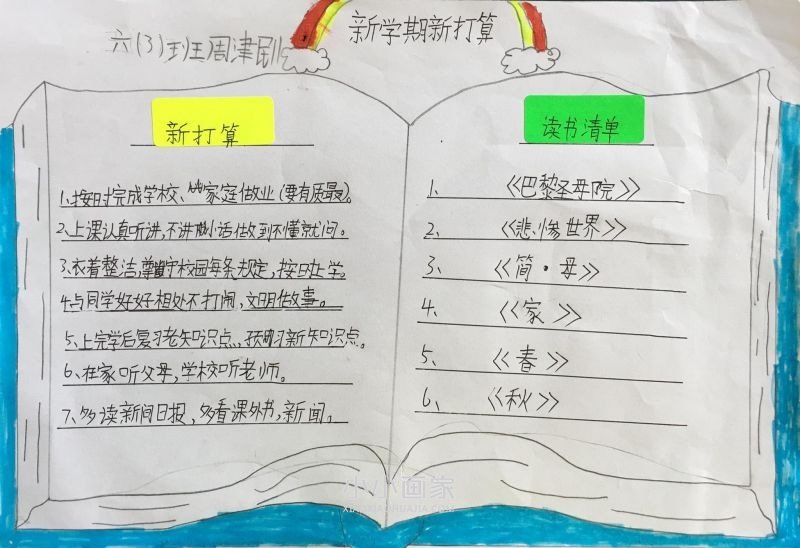 新学期新打算
六(3)班周津
新打算
1、按时完成学校、家庭做业(要有质量)。
2、上课认真听讲,不讲小话做到不懂就问。
3、衣着整洁,遵守校园每条规定,按时上学。
4、与同学好好相处不打闹,文明做事。
5、上完学后复习老知识点,预习新知识点。
6、在家听父母,学校听老师。
7、多读新闻日报、多看课外书,新闻。
读书清单
1、《巴黎圣母院》
2、《悲惨世界》
3、《简·母》
4、《家》
5、《春》
6、《秋》
小小画家
XIAOXIAOHUAJIA.COM